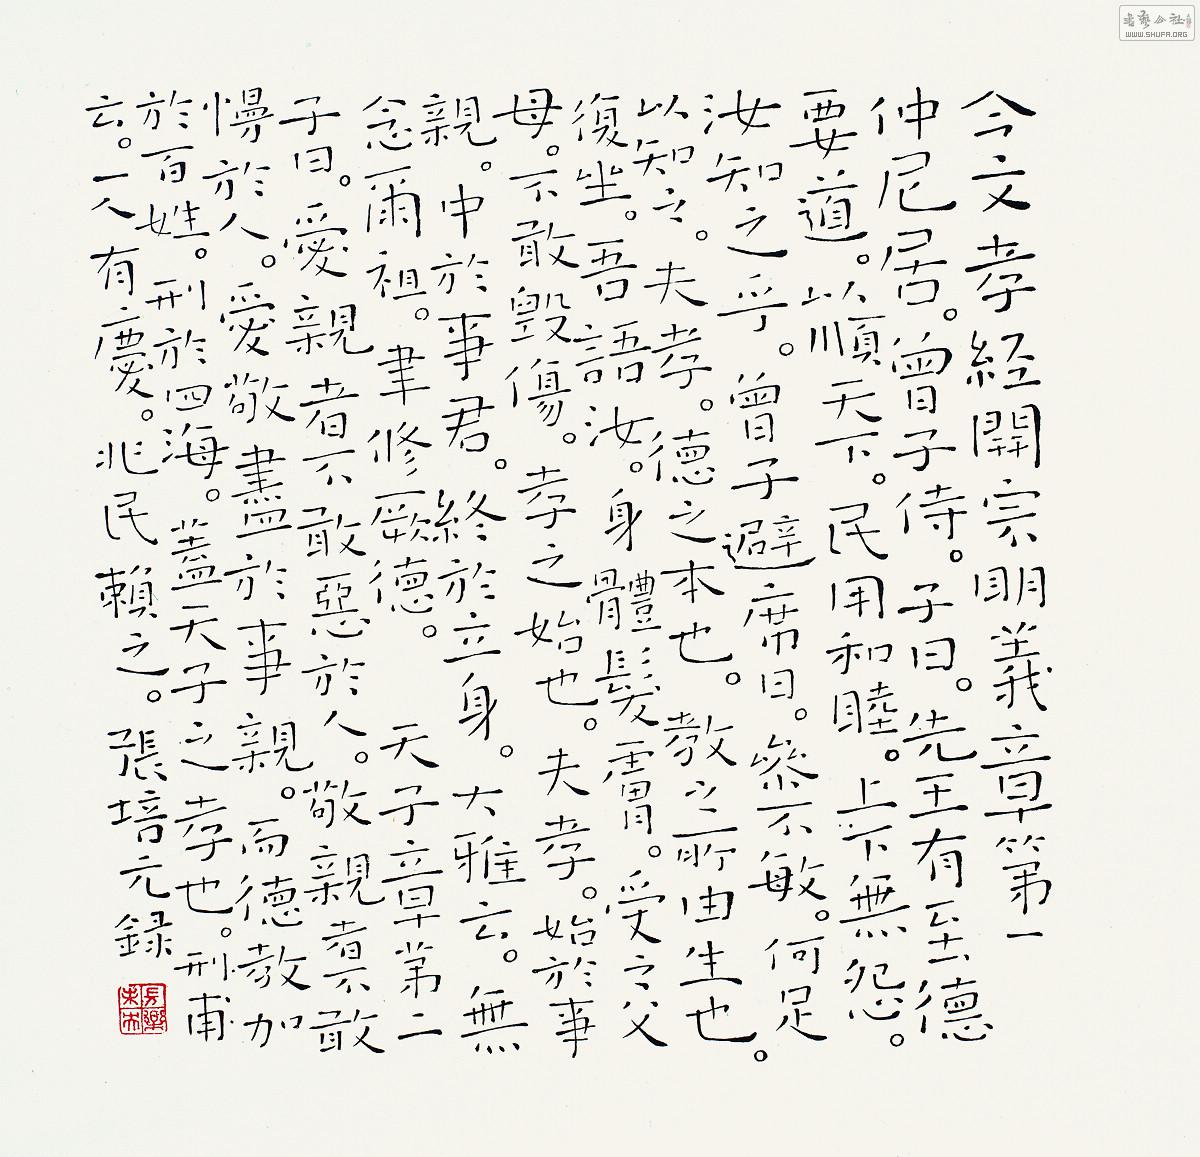 今文孝経開宗明義章第一
仲尼居。曾子侍。子曰。先王有至德
要道。以順天下。民用和睦。上下無怨。
汝知之乎。曾子避席曰。參不敏。何足
以知之。夫孝。德之本也。教之所由生也。
復坐。吾語汝。身體髮膚。受之父
母。不敢毀傷。孝之始也。夫孝。始於事
親。中於事君。終於立身。大雅云。無
念爾祖。聿修厥德。 天子章第二
子曰。愛親者不敢惡於人。敬親者不敢
慢於人。愛敬盡於事親。而德教加
於百姓。刑於四海。蓋天子之孝也。刑甫
云。一人有慶。兆民賴之。張培元録
長樂未央
書藝公社
WWW.SHUFA.ORG